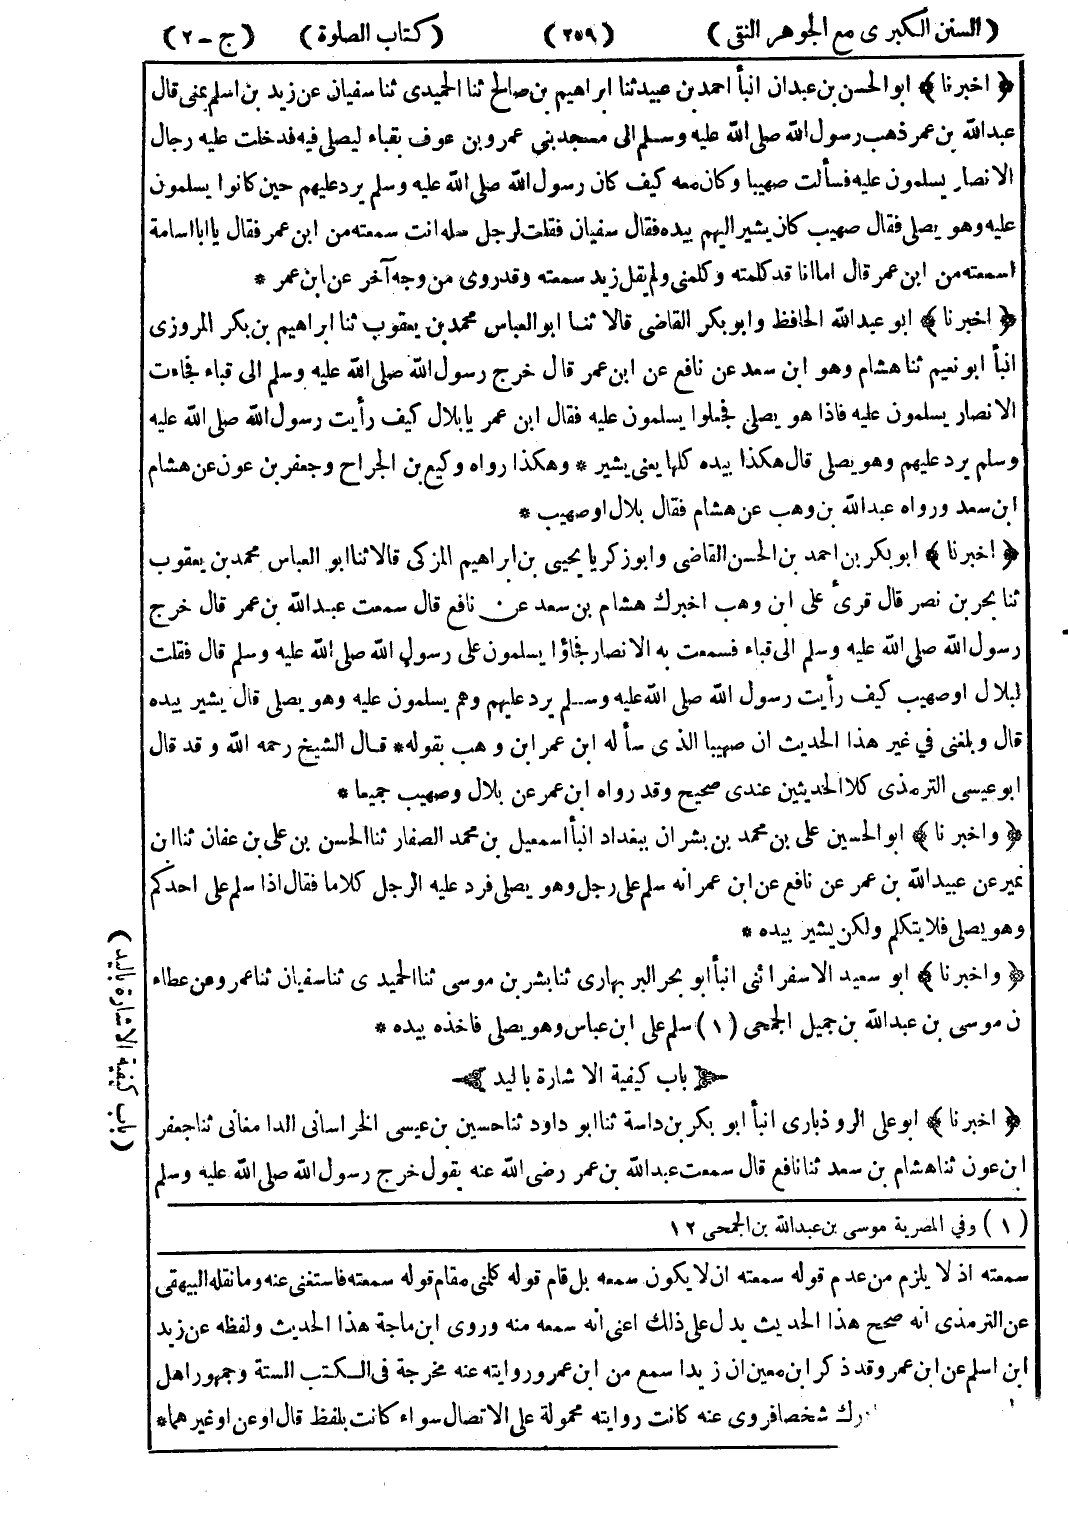 ( السنن الكبرى مع الجوهر النقى ) ( ٢٥٩ ) ( كتاب الصلوة ) ( ج - ٢ )
﴿ اخبرنا ﴾ ابو الحسن بن عبدان انبأ احمد بن عبيد ثنا ابراهيم بن صالح ثنا الحميدى ثنا سفيان عن زيد بن اسلم بمنى قال
عبد الله بن عمر ذهب رسول الله صلى الله عليه وسلم الى مسجد بني عمرو بن عوف بقباء ليصلى فيه فدخلت عليه رجال
الانصار يسلمون عليه فسألت صهيبا وكان معه كيف كان رسول الله صلى الله عليه وسلم يرد عليهم حين كانوا يسلمون
عليه وهو يصلى فقال صهيب كان يشير اليهم بيده فقال سفيان فقلت لرجل سله انت سمعته من ابن عمر فقال يا ابا اسامة
اسمعته من ابن عمر قال اما انا قد كلمته وكلمنى ولم يقل زيد سمعته وقد روى من وجه آخر عن ابن عمر *
﴿ اخبرنا ﴾ ابو عبد الله الحافظ وابو بكر القاضى قالا ثنا ابو العباس محمد بن يعقوب ثنا ابراهيم بن بكر المروزى
انبأ ابو نعيم ثنا هشام وهو ابن سعد عن نافع عن ابن عمر قال خرج رسول الله صلى الله عليه وسلم الى قباء فجاءت
الانصار يسلمون عليه فاذا هو يصلى فجعلوا يسلمون عليه فقال ابن عمر يا بلال كيف رأيت رسول الله صلى الله عليه
وسلم يرد عليهم وهو يصلى قال هكذا بيده كلها يعنى يشير * وهكذا رواه وكيع بن الجراح وجعفر بن عون عن هشام
ابن سعد ورواه عبد الله بن وهب عن هشام فقال بلال او صهيب *
﴿ اخبرنا ﴾ ابو بكر بن احمد بن الحسن القاضى وابو زكريا يحيى بن ابراهيم المزكى قالا ثنا ابو العباس محمد بن يعقوب
ثنا بحر بن نصر قال قرئ على ابن وهب اخبرك هشام بن سعد عن نافع قال سمعت عبد الله بن عمر قال خرج
رسول الله صلى الله عليه وسلم الى قباء فسمعت به الانصار فجاؤا يسلمون على رسول الله صلى الله عليه وسلم قال فقلت
لبلال او صهيب كيف رأيت رسول الله صلى الله عليه وسلم يرد عليهم وهم يسلمون عليه وهو يصلى قال يشير بيده
قال وبلغنى في غير هذا الحديث ان صهيبا الذى سأله ابن عمر ابن وهب يقوله * قال الشيخ رحمه الله وقد قال
ابو عيسى الترمذى كلا الحديثين عندى صحيح وقد رواه ابن عمر عن بلال وصهيب جميعا *
﴿ واخبرنا ﴾ ابو الحسين على بن محمد بن بشران ببغداد انبأ اسمعيل بن محمد الصفار ثنا الحسن بن على بن عفان ثنا ابن
نمير عن عبيد الله بن عمر عن نافع عن ابن عمر انه سلم على رجل وهو يصلى فرد عليه الرجل كلاما فقال اذا سلم على احدكم
وهو يصلى فلا يتكلم ولكن يشير بيده *
﴿ واخبرنا ﴾ ابو سعيد الاسفرائنى انبأ ابو بحر البربهارى ثنا بشر بن موسى ثنا الحميدى ثنا سفيان ثنا عمرو عن عطاء
ن موسى بن عبد الله بن جميل الجمحى ( ١ ) سلم على ابن عباس وهو يصلى فاخذه بيده *
باب كيفية الاشارة باليد
﴿ اخبرنا ﴾ ابو على الروذبارى انبأ ابو بكر بن داسة ثنا ابو داود ثنا حسين بن عيسى الخراسانى الدامغانى ثنا جعفر
ابن عون ثنا هشام بن سعد ثنا نافع قال سمعت عبد الله بن عمر رضى الله عنه يقول خرج رسول الله صلى الله عليه وسلم
( باب كيفية الاشارة باليد )
( ١ ) وفي المصرية موسى بن عبد الله بن الجمحى ١٢
سمعته اذ لا يلزم من عدم قوله سمعته ان لا يكون سمعه بل قام قوله كلمنى مقام قوله سمعته فاستغنى عنه وما نقله البيهقى
عن الترمذى انه صحيح هذا الحديث يدل على ذلك اعنى انه سمعه منه وروى ابن ماجة هذا الحديث ولفظه عن زيد
ابن اسلم عن ابن عمر وقد ذكر ابن معين ان زيدا سمع من ابن عمر وروايته عنه مخرجة فى الكتب الستة وجمهور اهل
شخصا فروى عنه كانت روايته محمولة على الاتصال سواء كانت بلفظ قال او عن او غيرهما *